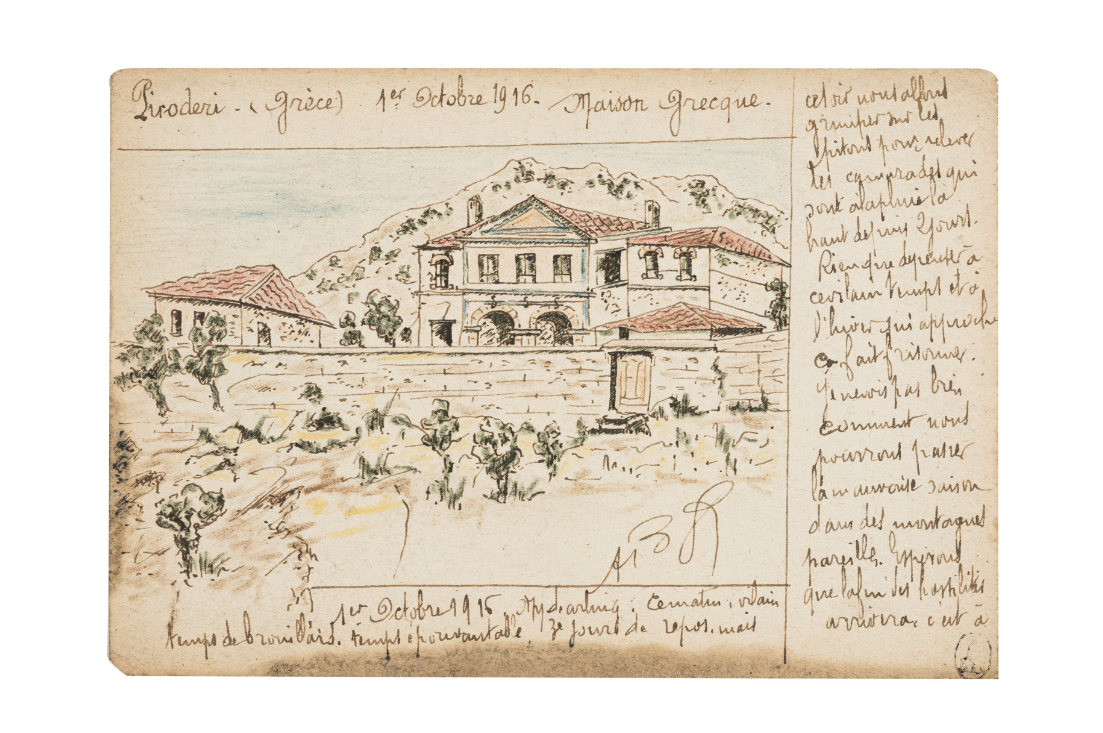 Picoderi - (Grèce) 1er Octobre 1916. Maison Grecque.
1er Octobre 1916 My darling. Ce matin, vilain
temps de brouillard. temps épouvantable. 3e jours de repos. mais
ce soir nous allons
grimper sur les
pitons pour relever
les camarades qui
sont à la pluie là
haut depuis 2 jours.
Rien que de penser à
ce vilain temps et à
l'hiver qui approche
ça fait frisonner.
Je ne vois pas bien
comment nous
pourrons passer
la mauvaise saison
dans des montagnes
pareilles. Espérons
que la fin des hostilités
arrivera. c'est à